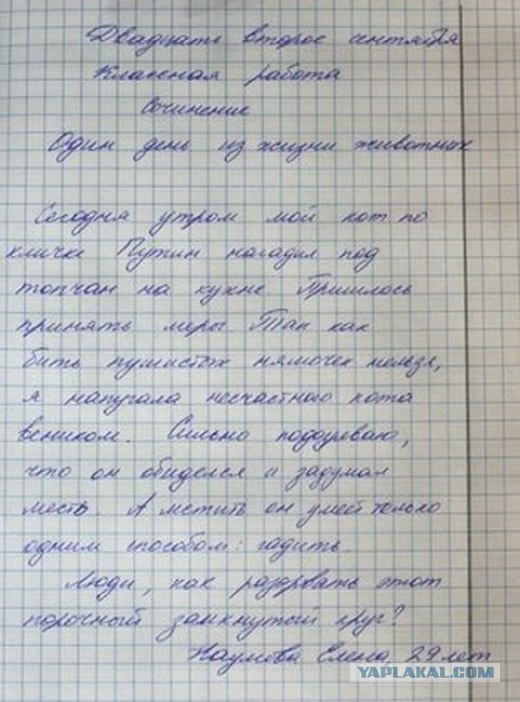 Двадцать второе сентября
Классная работа
Сочинение
Один день из жизни животных
Сегодня утром мой кот по
кличке Путин нагадил под
топчан на кухне. Пришлось
принять меры. Так как
бить пушистых нямочек нельзя,
я напугала несчастного кота
веником. Сильно подозреваю,
что он обиделся и задумал
месть. А мстить он умеет только
одним способом: гадить.
Люди, как разорвать этот
порочный замкнутый круг?
Наумова Елена, 29 лет
YAPLAKAL.COM